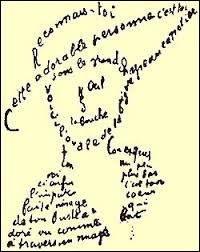 Reconnais-toi
Cette adorable personne c'est toi
Sous le grand chapeau canotier
Oeil
La bouche
Voici l'ovale de ta figure
Ton
Cou exquis
voi
ci enfin
l'impar
faite image
de ton buste a
doré vu comme
à travers un nuage
un peu
plus bas
c'est ton
coeur
qui
bat